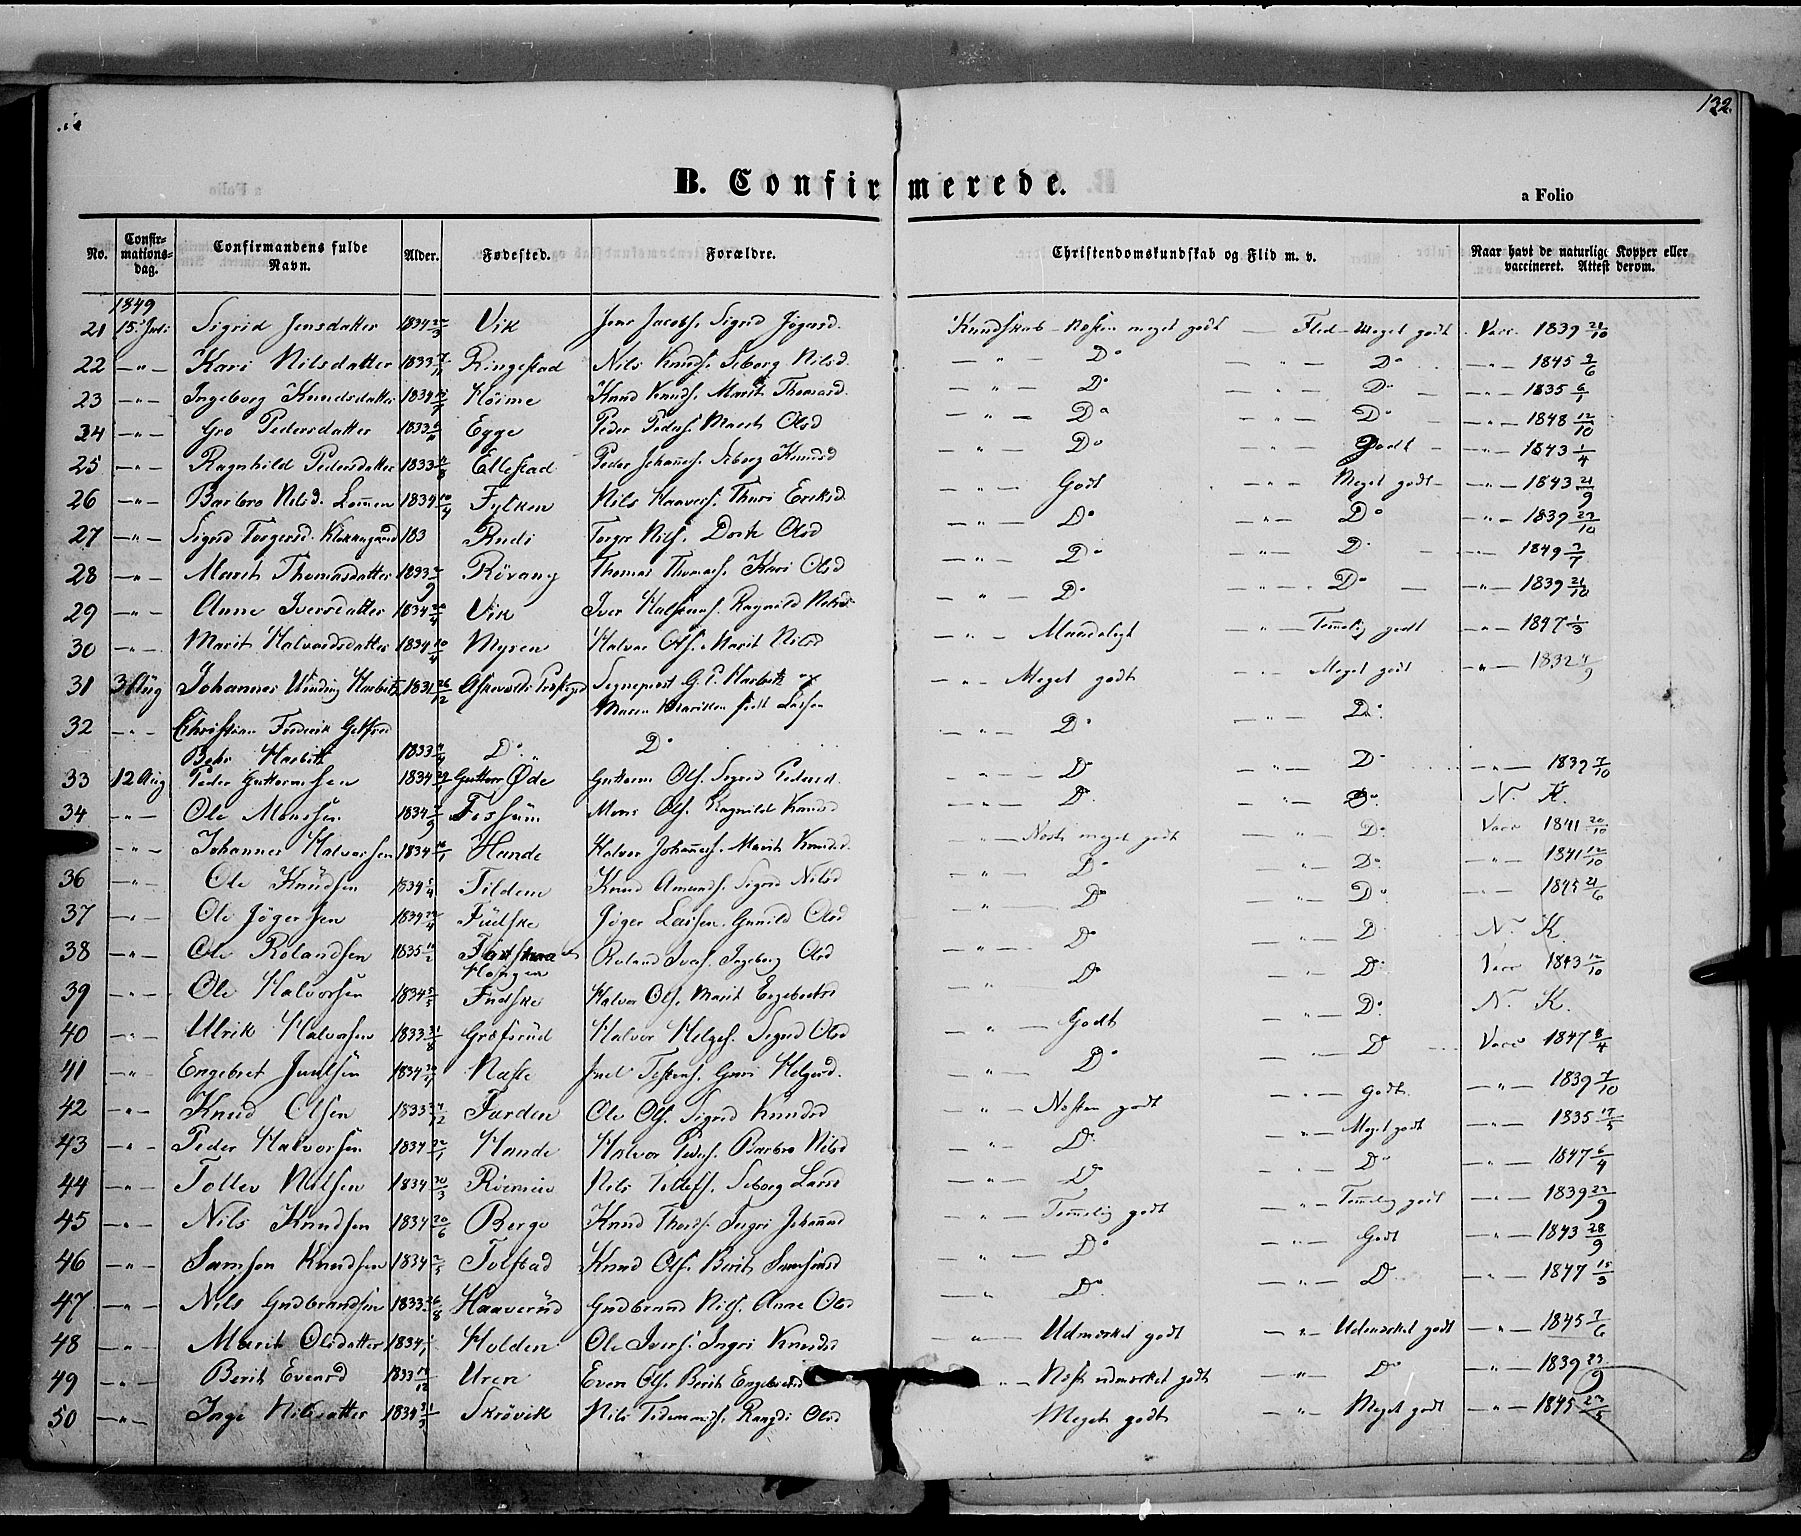 132.
B. Confirmerede.
a Folio
No. Confir-mations-dag. Confirmandens fulde Navn. Alder. Fødested. Forældre. Christendomskundskab og Flid m. v. Naar havt de naturlige Kopper eller vaccineret. Attest derom.
1849
21 15. Juli Sigrid Jensdatter 1834 22/3 Vik Jens Jacobs. Sigrid Kundskab - Næsten meget godt — Flid - Meget godt Vacc. 1839 21/10
22 —"— Kari Nilsdatter 1833 7/11 Ringestad Nils Knuds. Siborg Nilsd. —"— Do —"— Do —"— 1845 2/6
23 —"— Ingeborg Knudsdatter 1834 Høime Knud Knuds. Marit Thomasd. —"— Do —"— Do —"— 1835 6/1
24 —"— Gro Pedersdatter 1833 Egge Peder Peders. Marit Olsd —"— Do —"— Do —"— 1848 12/10
25 —"— Ragnhild Pedersdatter 1833 Ellestad Peder Johanes. Siborg Knudsd —"— Do —"— Godt —"— 1843 1/4
26 —"— Barbro Nilsd. Lomen 1834 10/4 Fylken Nils Haavers. Thuri Eriksd. —"— Godt —"— Meget godt —"— 1843 21/9
27 —"— Sigrid Torgersd. Klokkergaard 183 Rudi Torger Nils. Olsd —"— Do —"— Do —"— 1839 27/10
28 —"— Marit Thomasdatter 1833 Røvang Thomas Thomas. Kari Olsd —"— Do —"— Do —"— 1849 7/7
29 —"— Anne Iversdatter 1834 Vik Iver Ragnild —"— Do —"— Do —"— 1839 21/10
30 —"— Marit Halvordsdatter 1834 10/4 Myren Halvor Ols. Marit Nilsd —"— Maadeligt —"— Temelig godt —"— 1847 1/3
31 3 Aug Johannes Winding Harbitz 1831 26/12 Sognepræst G. P. Harbitz og —"— Meget godt —"— Meget godt —"— 1832
Maren født Lassen
32 —"— Christian Frederik Gotfred —"— Do —"— Do
Behr Harbitz 1833 Do Do
33 12 Aug Peder Guttormsen 1834 Øde Guttorm Ols. Sigrid Pedersd. —"— Do —"— Do —"— 1839 7/10
34 —"— Ole Monsen 1834 Fossum Mons Ols. Ragnilde Knudsd —"— Do —"— Do N. K.
—"— Johannes Halvorsen 1834 Hande Halvor Johanes. Marit Knudsd. —"— Næst meget godt —"— Do Vacc 1841 20/10
36 —"— Ole Knudsen 1834 5/4 Tildem Knud Amunds. Sigrid Nilsd —"— Do —"— Do —"— 1841 12/10
37 —"— Ole Jøgersen 1834 Fudske Jøger Lassen. Gunild Olsd —"— Do —"— Do —"— 1845 21/6
38 —"— Ole Rolandsen 1835 Roland Ivers. Ingeborg Olsd —"— Do —"— Do N. K.
39 —"— Ole Halvorsen 1834 5/5 Fudske Halvor Ols. Marit Engebretsd —"— Do —"— Do Vacc 1843 12/10
40 —"— Ulrik Halvorsen 1833 31/8 Grøfsrud Halvor Helges. Sigrid Olsd —"— Godt —"— Do N. K.
41 —"— Engebret Juulsen 1834 Næste Juel Guri Helgesd. —"— Do —"— Do Vacc 1847 8/4
42 —"— Knud Olsen 1833 Farden Ole Ols. Sigrid Knudsd —"— Næsten godt —"— Godt —"— 1839 7/10
43 —"— Peder Halvorsen 1834 22/1 Hande Halvor Peders. Barbro Nilsd —"— Do —"— Meget godt —"— 1835 17/5
44 —"— Tollev Nilsen 1834 20/3 Nils Tollefs. Siborg Larsd —"— Do —"— Do —"— 1847 6/4
45 —"— Nils Knudsen 1834 20/6 Berge Knud Thords. Ingri Johanesd —"— Temelig godt —"— Temelig godt —"— 1839 27/9
46 —"— Samson Knudsen 1834 2/5 Tolstad Knud Ols. Berit —"— Do —"— Godt —"— 1843 28/9
47 —"— Nils Gudbrandsen 1833 26/8 Haaverud Gudbrand Nils. Anne Olsd —"— Do —"— Do —"— 1847 15/3
48 —"— Marit Olsdatter 1834 Holden Ole Ivers. Ingri Knudsd —"— Udmærket godt —"— Udmærket godt —"— 1845 7/6
49 —"— Berit Evensd 1833 Uren Even Ols. Berit Engebretsd —"— Næst udmærket godt —"— Do —"— 1839 27/9
50 —"— Inge Nilsdatter 1834 Skrøvik Nils Tidemands. Rangdi Olsd Meget godt —"— Meget godt —"— 1845